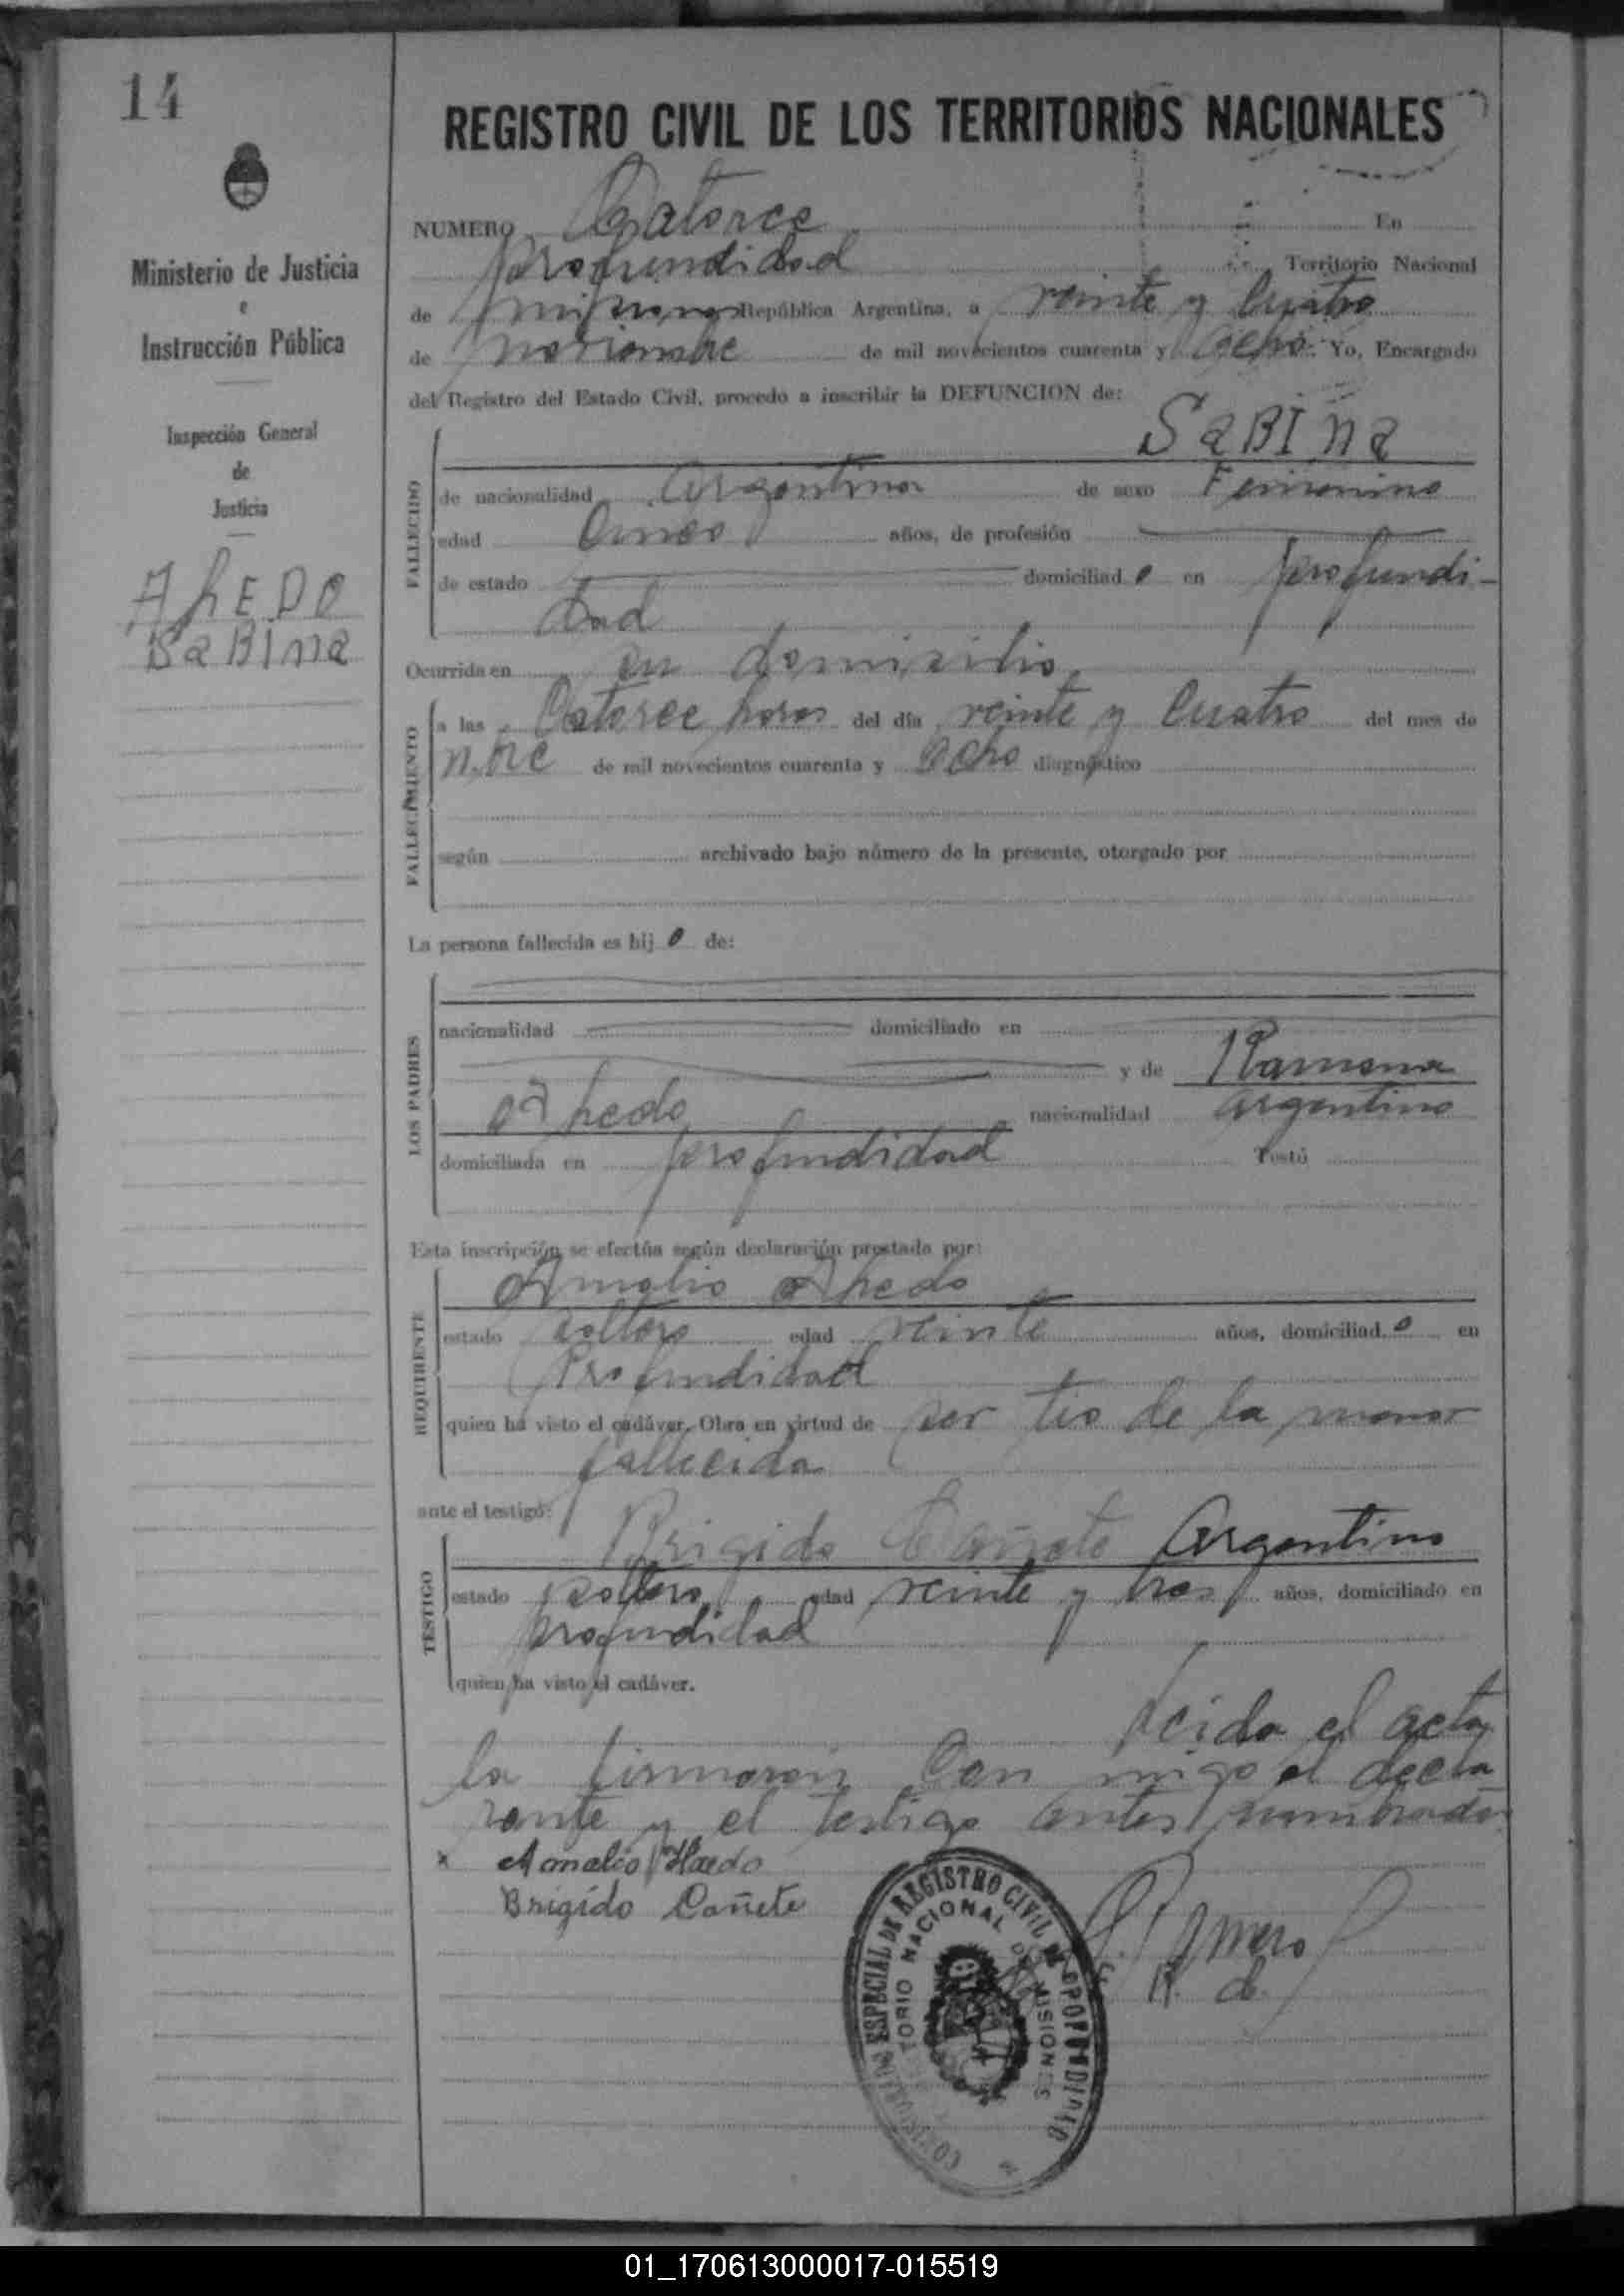 14
REGISTRO CIVIL DE LOS TERRITORIOS NACIONALES
Ministerio de Justicia
e
Instrucción Pública
Inspección General
de
Justicia
AhEDO
SaBina
NUMERO Catorce En
profundidad Territorio Nacional
de misiones República Argentina, a veinte y Cuatro
de noviembre de mil novecientos cuarenta y Ocho. Yo, Encargado
del Registro del Estado Civil, procedo a inscribir la DEFUNCION de:
SaBIna
FALLECIDO
de nacionalidad Argentina de sexo Femenino
edad Cinco años, de profesión
de estado domiciliado en profundi-
dad
Ocurrida en su domicilio
FALLECIMIENTO
a las Catorce horas del día veinte y Cuatro del mes de
n.bre de mil novecientos cuarenta y Ocho diagnóstico
según archivado bajo número de la presente, otorgado por
La persona fallecida es hijo de:
LOS PADRES
nacionalidad domiciliado en
y de Ramona
Ahedo nacionalidad argentina
domiciliada en profundidad Testó
Esta inscripción se efectúa según declaración prestada por:
REQUIRENTE
Amalio Ahedo
estado soltero edad veinte años, domiciliado en
Profundidad
quien ha visto el cadáver. Obra en virtud de ser tio de la menor
fallecida
ante el testigo:
TESTIGO
Brigido Cañete Argentino
estado soltero edad veinte y tres años, domiciliado en
profundidad
quien ha visto el cadáver.
Leida el acta
la firmaron Con migo el decla
rante y el testigo antes nombrados
x Amalio Haedo
Brigído Cañete
REGISTRO CIVIL DE PROFUNDIDAD
ESPECIAL DE
TERRITORIO NACIONAL DE MISIONES
01_170613000017-015519